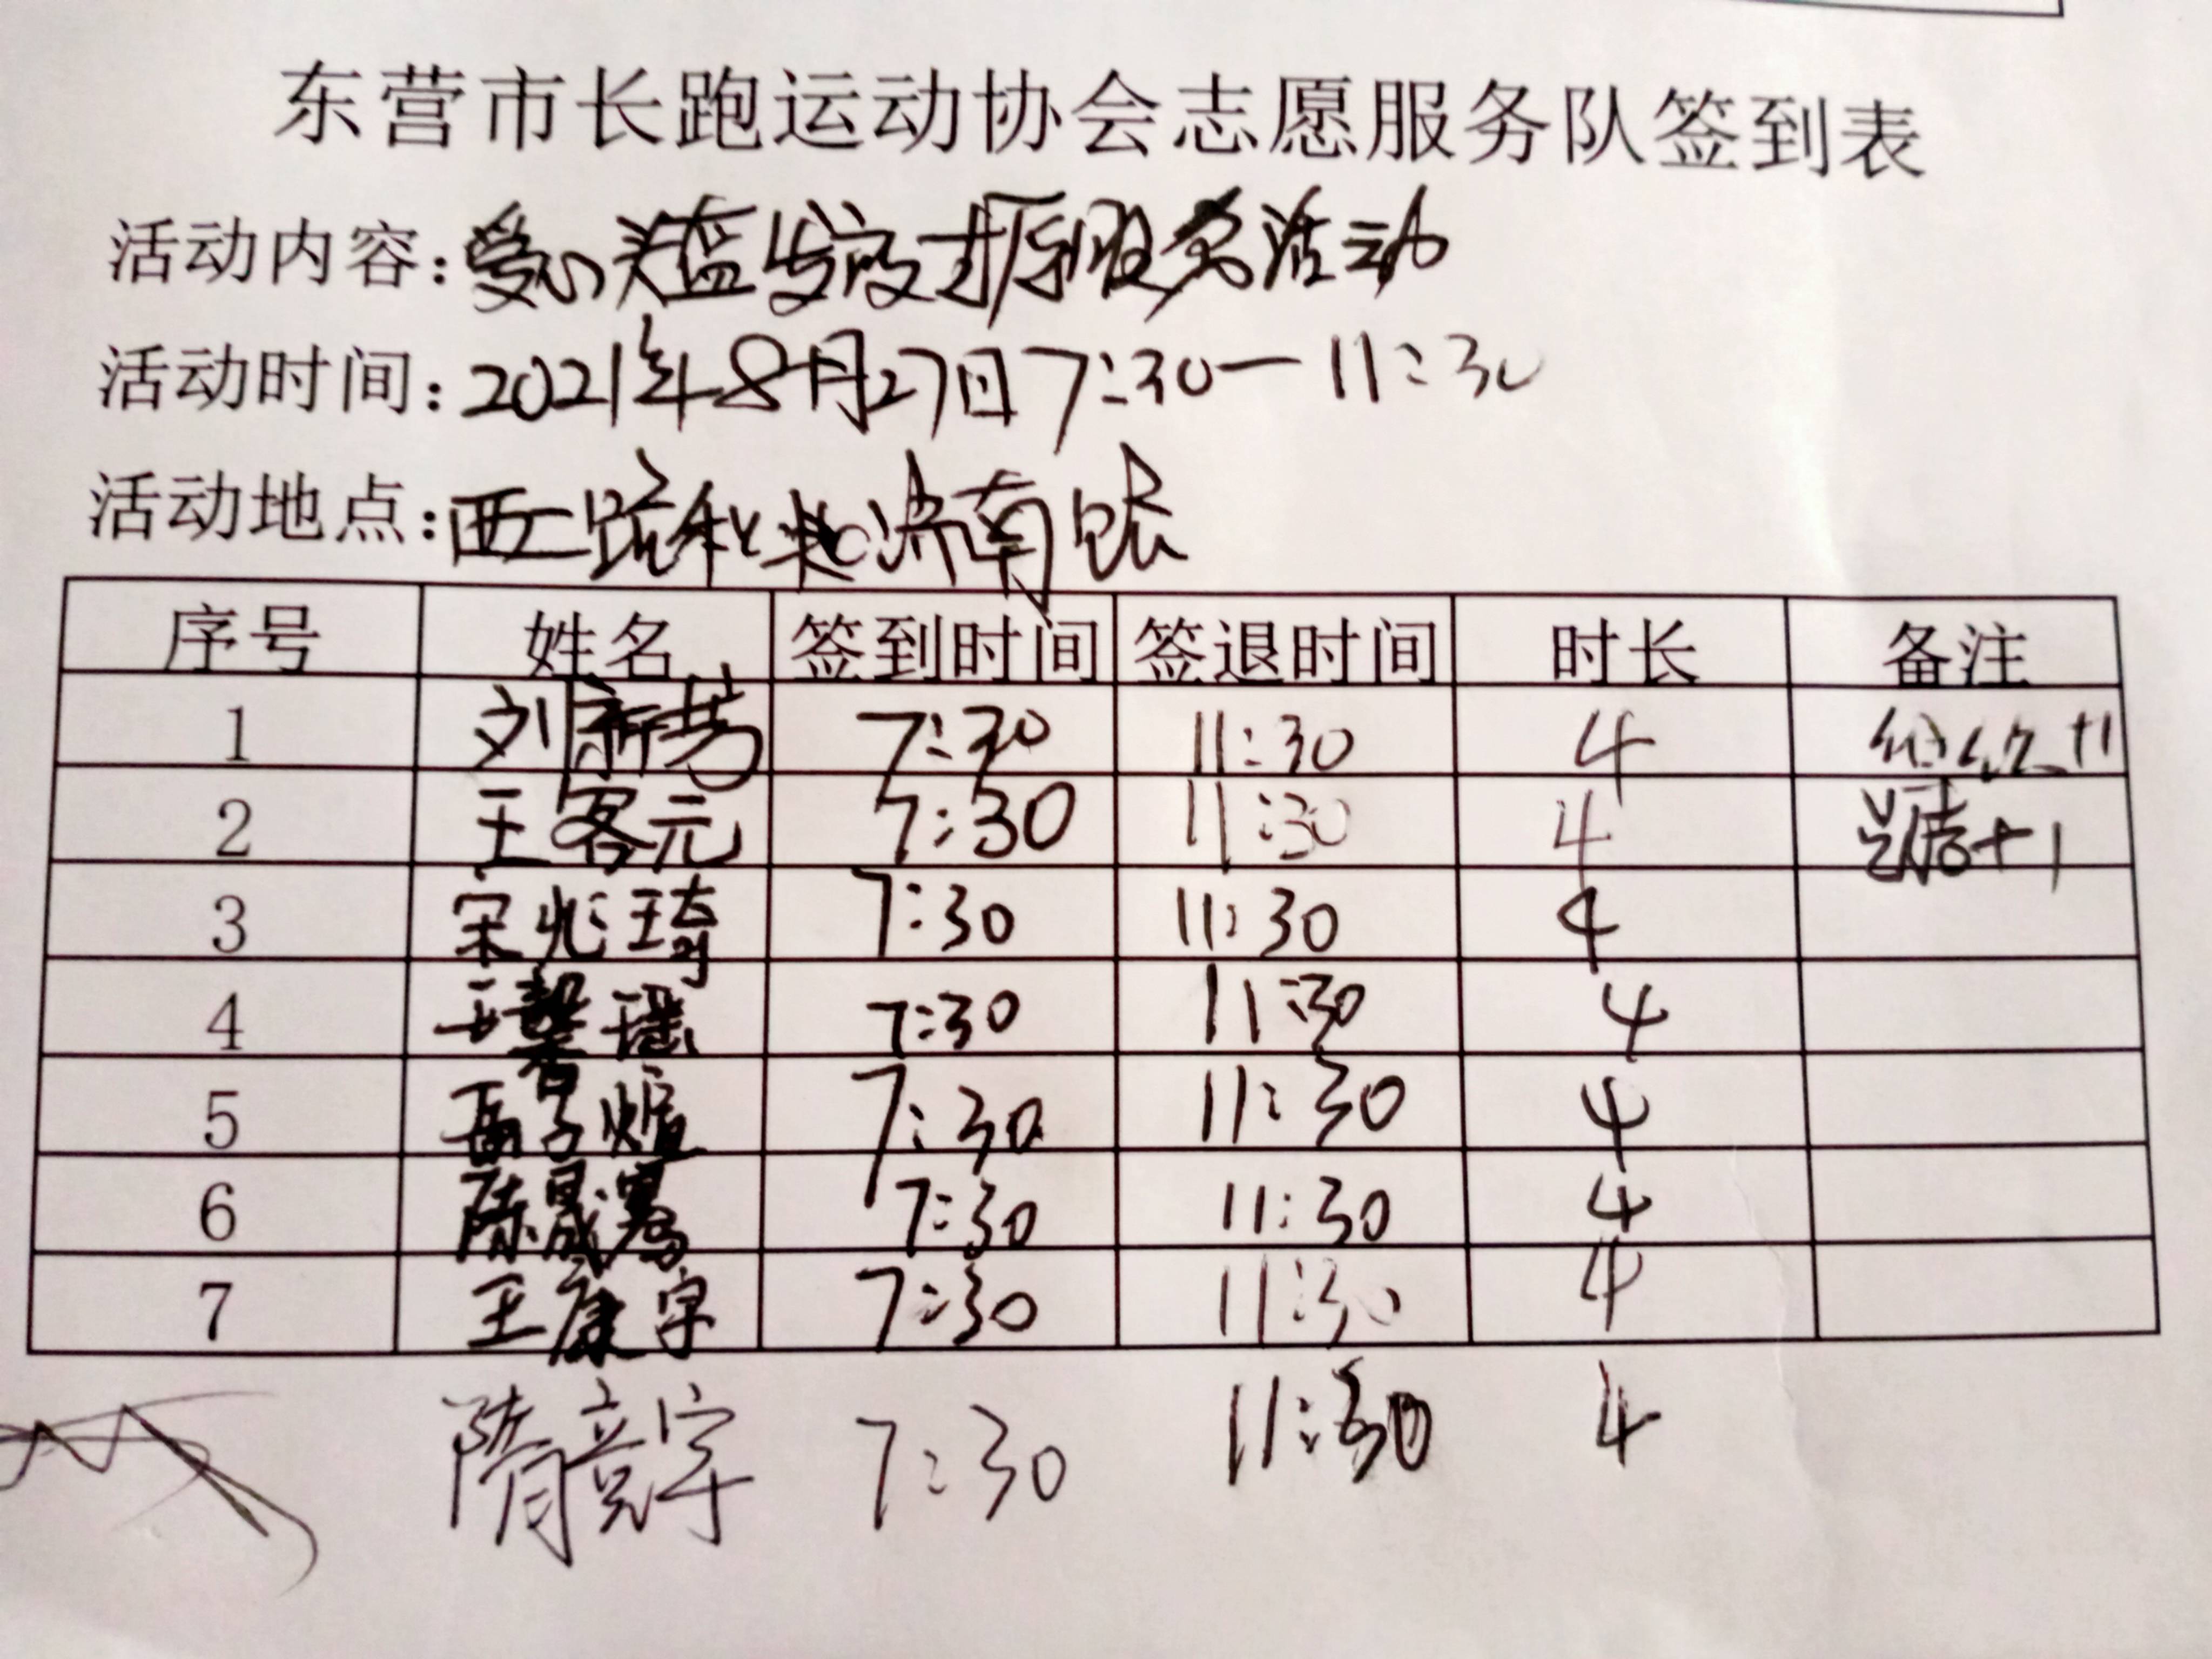 东营市长跑运动协会志愿服务队签到表
活动内容：爱心头盔发放志愿服务活动
活动时间：2021年8月27日7:30一11:30
活动地点：西二路和济南路
序号 姓名 签到时间 签退时间 时长 备注
1 刘新芳 7:30 11:30 4 +1
2 王客元 7:30 11:30 4 +1
3 宋兆琦 7:30 11:30 4
4 王馨瑶 7:30 11:30 4
5 子 7:30 11:30 4
6 陈晟骞 7:30 11:30 4
7 王康宇 7:30 11:30 4
隋意宇 7:30 11:30 4